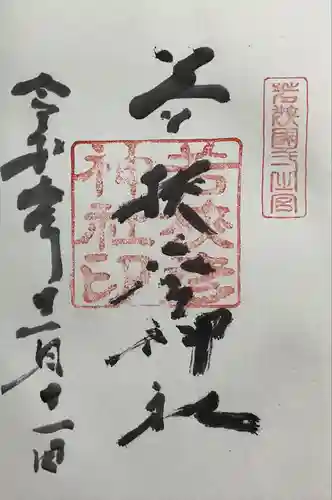 若狭國一之宮
若狭彦神社
若狭彦
神社印
令和年十一月十一日